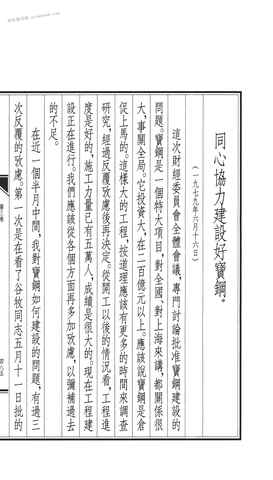 同心協力建設好寶鋼*
（一九七九年六月十六日）
這次財經委員會全體會議，專門討論批准寶鋼建設的
問題。寶鋼是一個特大項目，對全國、對上海來講，都關係很
大，事關全局。它投資大，在二百億元以上。應該說寶鋼是倉
促上馬的。這樣大的工程，按道理應該有更多的時間來調查
研究，經過反覆攷慮後再決定。從開工以後的情況看，工程進
度是好的，施工力量已有五萬人，成績是很大的。現在工程建
設正在進行。我們應該從各個方面再多加攷慮，以彌補過去
的不足。
在近一個半月中間，我對寶鋼如何建設的問題，有過三
次反覆的攷慮。第一次是在看了谷牧同志五月十一日批的